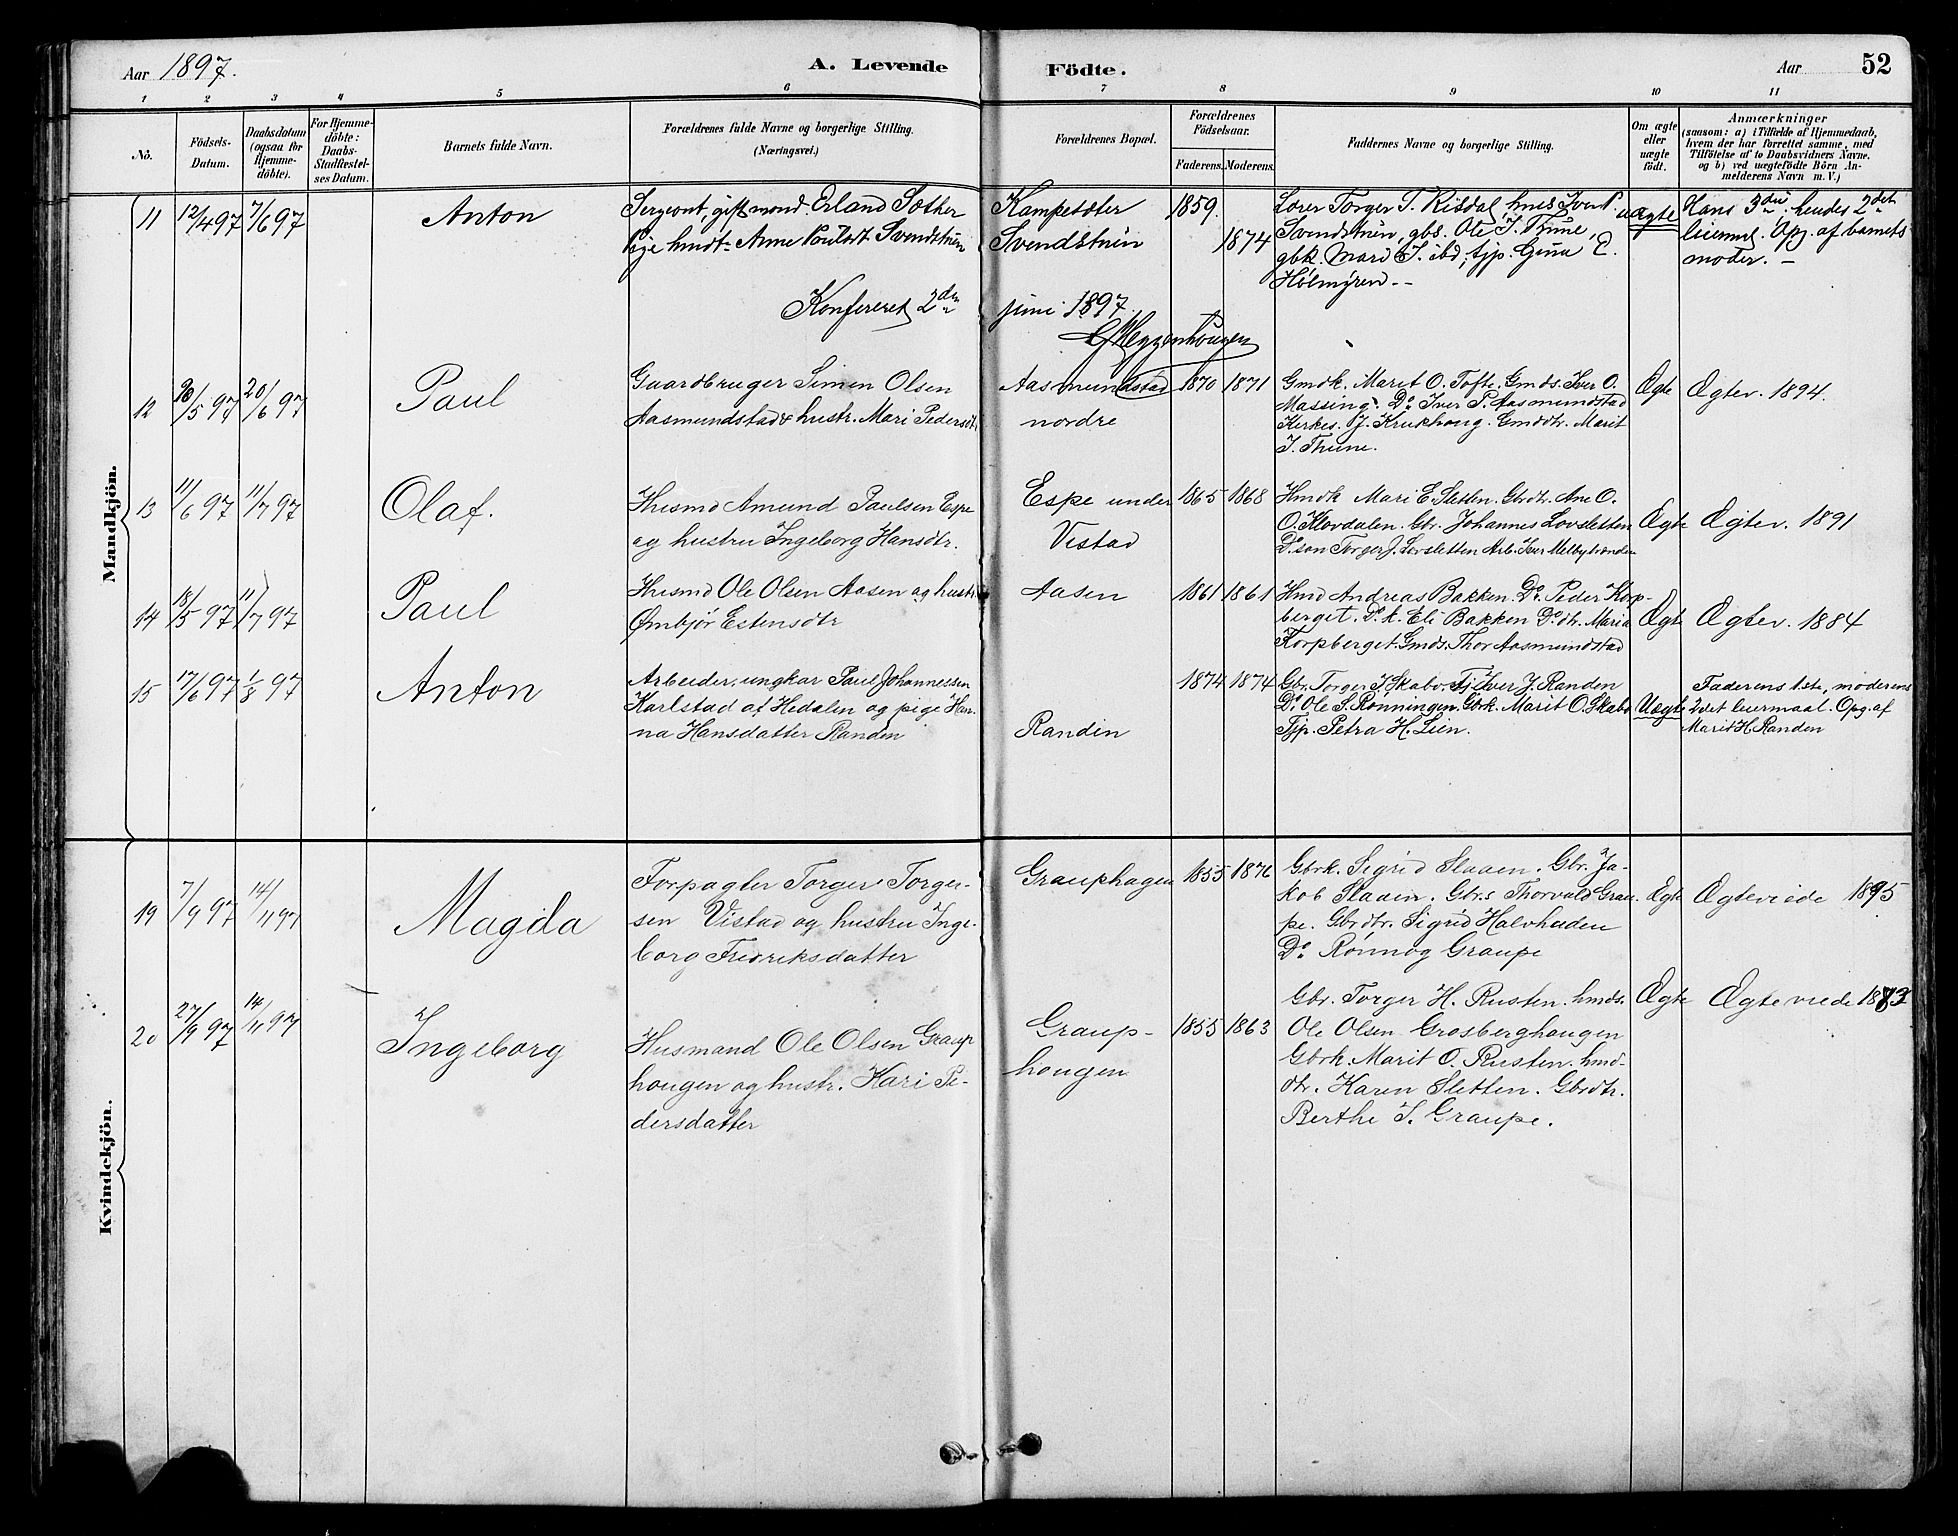 Aar 1897.
A. Levende Födte.
Aar 52
1 2 3 4 5 6 7 8 9 10 11
No.
Födsels-
Datum.
Daabsdatum
(ogsaa for
Hjemme-
döbte).
For Hjemme-
döbte:
Daabs-
Stadfæstel-
ses Datum.
Barnets fulde Navn.
Forældrenes fulde Navne og borgerlige Stilling.
(Næringsvei.)
Forældrenes Bopæl.
Forældrenes
Födselsaar.
Faderens. Moderens.
Faddernes Navne og borgerlige Stilling.
Om ægte
eller
uægte
født.
Anmærkninger
(saasom: a) i Tilfælde af Hjemmedaab,
hvem der har forrettet samme, med
Tilföielse af to Daabsvidners Navne.
og b) ved uægtefödte Börn An-
melderens Navn m. V.)
Mandkjön.
11 12/4 97 7/6 97
Anton
Sergeant, gift mand. Erland Sæther
Pige hmdt. Anne Poulsdt Svendstuen
Kampesæter
Svendstuen
1859.
1874
Lærer Torger T. Risdal, hnes Iver P.
Svendstuen, gbs. Ole I. Thune,
gbk. Mari E. I. ibd; tjp. Gina E.
Holmyren. --
uægte
Hans 3die hendes 2det
leierml. Opg. af barnets
moder. -
Konfereret 2den juni 1897.
12 /5 97 20/6 97
Paul
Gaardbruger Simen Olsen
Aasmundstad & hustr. Mari Pedersdt.
Aasmundstad
nordre
1870 1871
Gmdk. Marit O. Tofte. Gmds. Iver O.
Massing. Do Iver P. Aasmundstad
Kirkes. J. Krukhoug. Gmddtr. Marit
I. Thune.
Ægte
Ægtev. 1894.
13 11/6 97 11/7 97
Olaf.
Husmd Amund Paulsen Espe
og hustru Ingeborg Hansdtr.
Espe under
Vistad
1865 1868
Hmdk Mari E. Sletten. Gbdtr. Ane O.
O. Klovdalen. Gbr. Johannes Lovsletten
Do søn Torger J. Lovsletten Arb. Iver Melbytrænden
Ægte
Ægtev. 1891
14 18/5 97 11/7 97
Paul
Husmd Ole Olsen Aasen og hustr.
Ømbjør Estensdtr
Aasen
1861 1861
Hmd Andreas Bakken. Do Peder Korp-
berget. Do k. Eli Bakken Do dtr. Maria
Korpberget. Gmds. Thor Aasmundstad
Ægte
Ægtev. 1884
15 17/6 97 1/8 97
Anton
Arbeider, ungkar Paul Johannessen
Karlstad af Hedalen og pige Han-
na Hansdatter Randen
Randen
1874 1874
Gbr. Torger J. Skabo. Tj. Iver J. Randen
Do Ole S. Rønningen. Gbrk. Marit O. Skabo
Tjp. Petra H. Lien.
Uægte
Faderens 1ste, moderens
2det leiermaal. Opg. af
Marit H. Randen
Kvindekjön.
19 7/9 97 14/11 97
Magda
Forpagter Torger Torger-
sen Vistad og hustru Inge-
borg Fredriksdatter
Grauphagen
1855 1876
Gbrk. Sigrid Slaaen. Gbr. Ja-
kob Slaaen. Gbrs Thorvald Grau-
pe. Gbrdtr. Sigrid Halvheiden
Do Rønnog Graupe
Ægte
Ægteviede 1895
20 27/9 97 14/11 97
Ingeborg
Husmand Ole Olsen Graup
hougen og hustr. Kari Pe-
dersdatter
Graup-
hougen
1855 1863
Gbr. Torger H. Rusten. hmds.
Ole Olsen Grosberghaugen
Gbrk. Marit O. Rusten. hmd-
dtr. Karen Sletten. Gbrdtr.
Berthe S. Graupe.
Ægte
Ægteviede